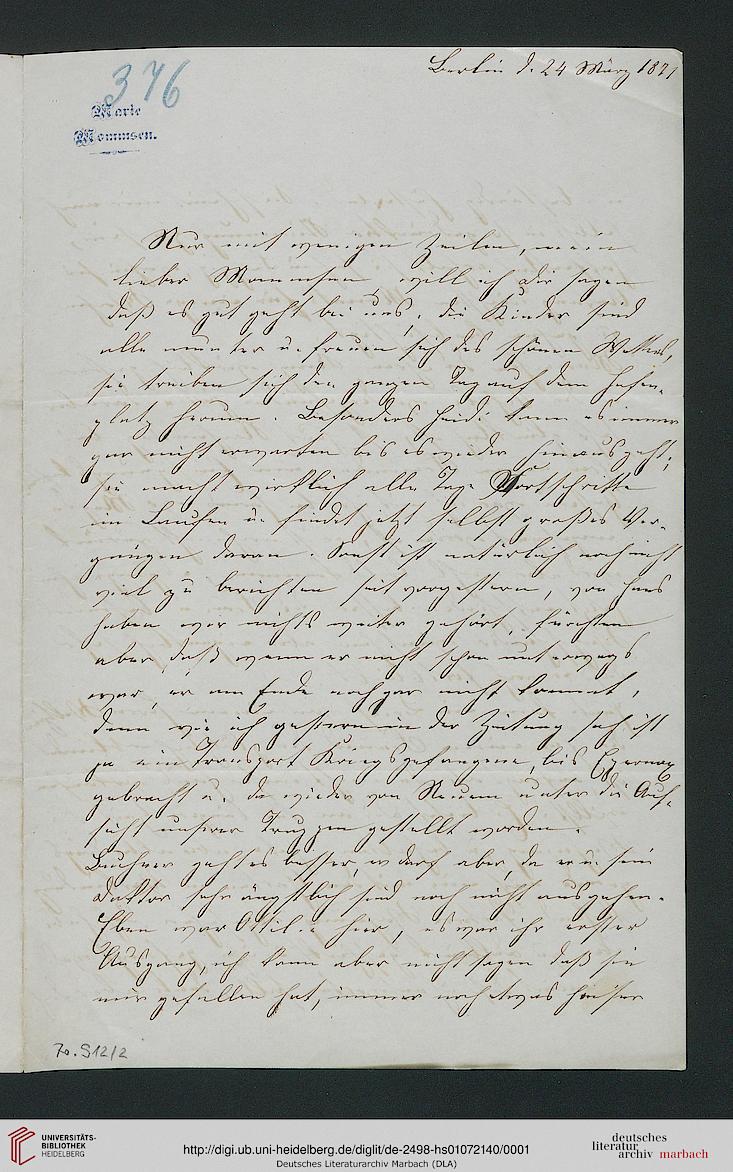 Berlin d. 24 März 1871
376
Marie
Mommsen.
Nur mit wenigen Zeilen, mein
lieber Mommsen will ich Dir sagen
daß es gut geht bei uns, die Kinder sind
alle munter u. freuen sich des schönen Wetters,
sie treiben sich den ganzen Tag auf dem
platz herum. Besonders Heidi kann es immer
gar nicht erwarten bis es wieder hinausgeht;
sie macht wirklich alle Tage Fortschritte
im Laufen u. findet jetzt selbst großes Ver-
gnügen daran. Sonst ist natürlich noch nicht
viel zu berichten seit vorgestern, von Hans
haben wir nichts weiter gehört, fürchten
aber daß wenn er nicht schon unterwegs
war, er am Ende noch gar nicht kommt,
denn wie ich gestern in der Zeitung sah ist
ja ein Transport Kriegsgefangene bis Epernay
gebracht u. da wieder von Neuem unter die Auf-
sicht unserer Truppen gestellt worden.
geht es besser, er darf aber, da er u. sein
Doktor sehr ängstlich sind noch nicht ausgehen.
Eben war Ottilie hier, es war ihr erster
Ausgang, ich kann aber nicht sagen daß sie
mir gefallen hat, immer noch etwas heiser
70.912/2
UNIVERSITÄTS-
BIBLIOTHEK
HEIDELBERG
http://digi.ub.uni-heidelberg.de/diglit/de-2498-hs01072140/0001
Deutsches Literaturarchiv Marbach (DLA)
deutsches
literatur
archiv marbach